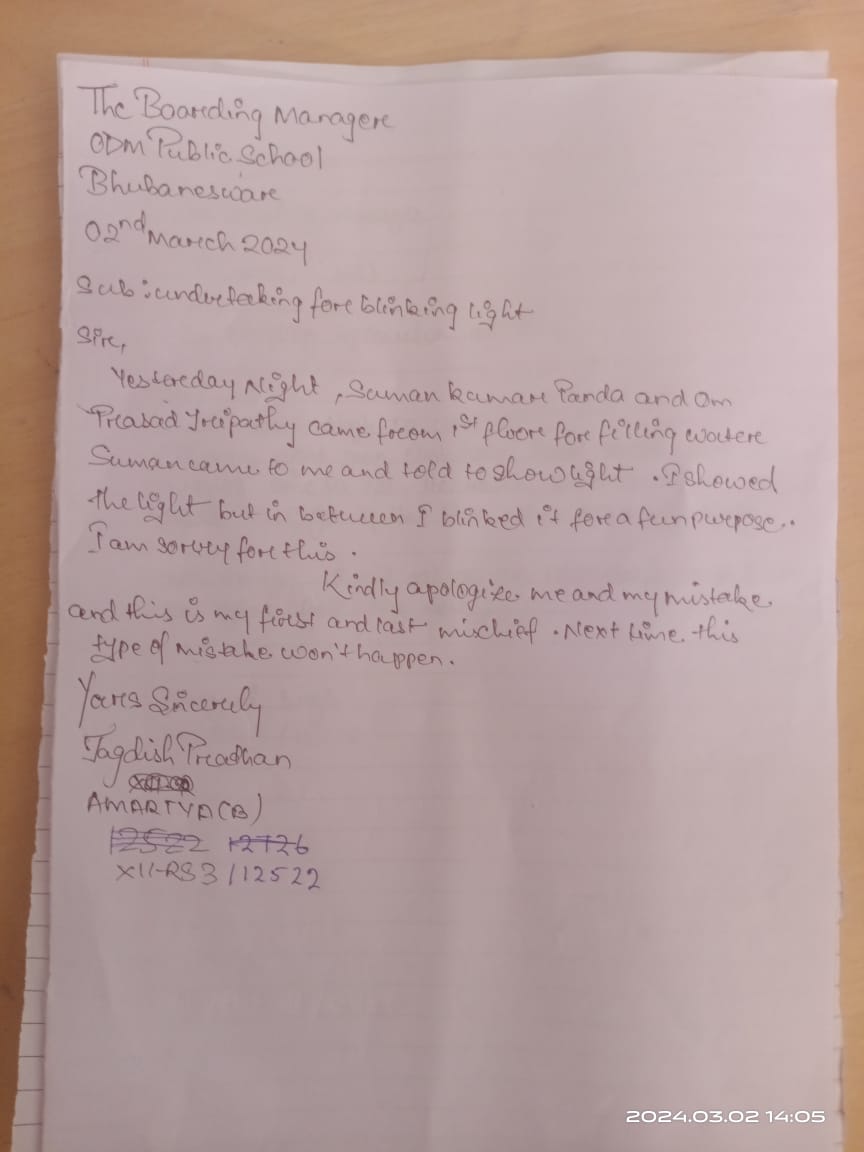 The Boarding Manager
ODM Public School
Bhubaneswar
02nd March 2024
Sub: undertaking for blinking light
Sir,
Yesterday Night, Suman kumar Panda and Om
Prasad Tripathy came from 1st floor for filling water
Suman came to me and told to show light. I showed
the light but in between I blinked it for a fun purpose..
I am sorry for this.
Kindly apologize me and my mistake
and this is my first and last mischief. Next time this
type of mistake won't happen.
Yours Sincerely
Jagdish Pradhan
AMARTYA(B)
12522 12726
XII-RS3/12522
2024.03.02 14:05